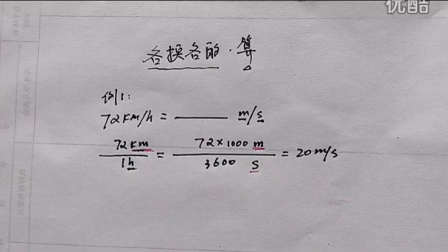 优酷
各换各的·算
例1:
72KM/h = ______ m/s
72km/1h = 72×1000 m/3600 S = 20m/s